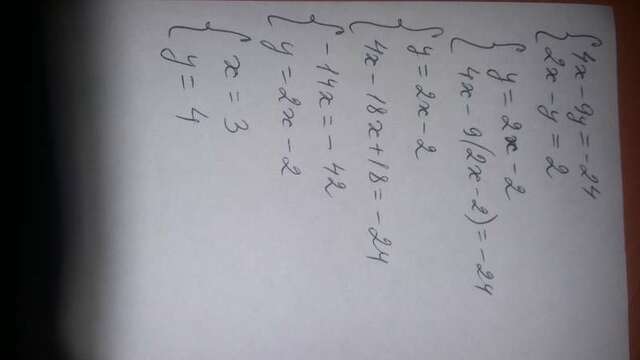 { 4x - 9y = -24
2x - y = 2
{ y = 2x - 2
4x - 9(2x - 2) = -24
{ y = 2x - 2
4x - 18x + 18 = -24
{ -14x = -42
y = 2x - 2
{ x = 3
y = 4